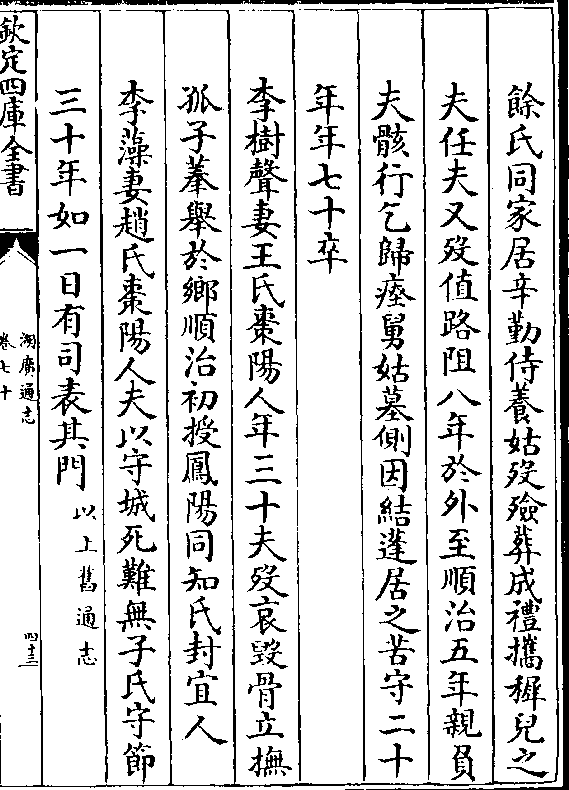 餘氏同家居辛勤侍養姑歿殮葬成禮攜穉兒之
夫任夫又歿值路阻八年於外至順治五年親負
夫骸行乞歸瘞舅姑墓側因結蓬居之苦守二十
年年七十卒
李樹聲妻王氏棗陽人年三十夫歿哀毀骨立撫
孤子搴舉於鄉順治初授鳳陽同知氏封宜人
李藻妻趙氏棗陽人夫以守城死難無子氏守節
三十年如一日有司表其門以上舊通志
欽定四庫全書
湖廣通志
卷七十
四十三